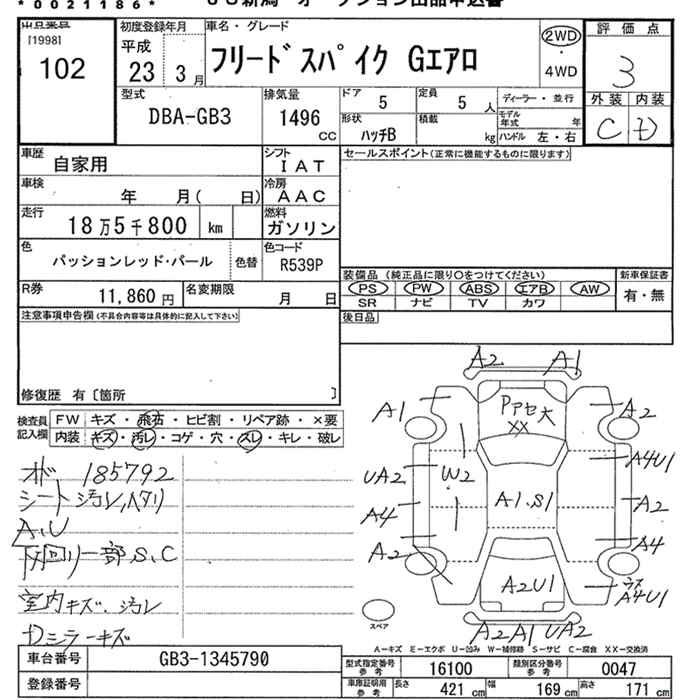 *0021186*
出品番号 初度登録年月 車名・グレード 評価点
[1998] 102 平成 23年 3月 フリードスパイク Gエアロ 2WD ・ 4WD 3
型式 排気量 ドア 5 定員 5人 ディーラー・並行 外装 内装
DBA-GB3 1496 CC 形状 ハッチB 積載 kg モデル年式 年 ハンドル 左・右 C D
車歴 自家用 シフト IAT セールスポイント(正常に機能するものに限ります)
車検 年 月( 日) 冷房 AAC
走行 18万5千800 km 燃料 ガソリン
色 パッションレッド・パール 色替 色コード R539P
装備品(純正品に限り○をつけてください) 新車保証書
R券 11,860円 名変期限 月 日 PS PW ABS エアB AW 有・無
SR ナビ TV カワ
注意事項申告欄(不具合内容等は具体的に記入して下さい) 後日品
修復歴 有〔箇所 〕
検査員記入欄 FW キズ・飛石・ヒビ割・リペア跡・×要
内装 キズ・汚レ・コゲ・穴・スレ・キレ・破レ
185792
シート汚レ,ヘタリ
A,U
下回リ一部S,C
室内キズ、汚レ
Dミラーキズ
A2 A1
A1 A2
XX
UA2 W2 A4U1
A1.S1 A2
A4 A4
A2 A4U1
A2U1
A2A1UA2
スペア
A-キズ E-エクボ U-凹み W-補修跡 S-サビ C-腐食 XX-交換済
車台番号 GB3-1345790 型式指定番号参考 16100 類別区分番号参考 0047
登録番号 車庫証明用参考 長さ 421cm 幅 169cm 高さ 171cm